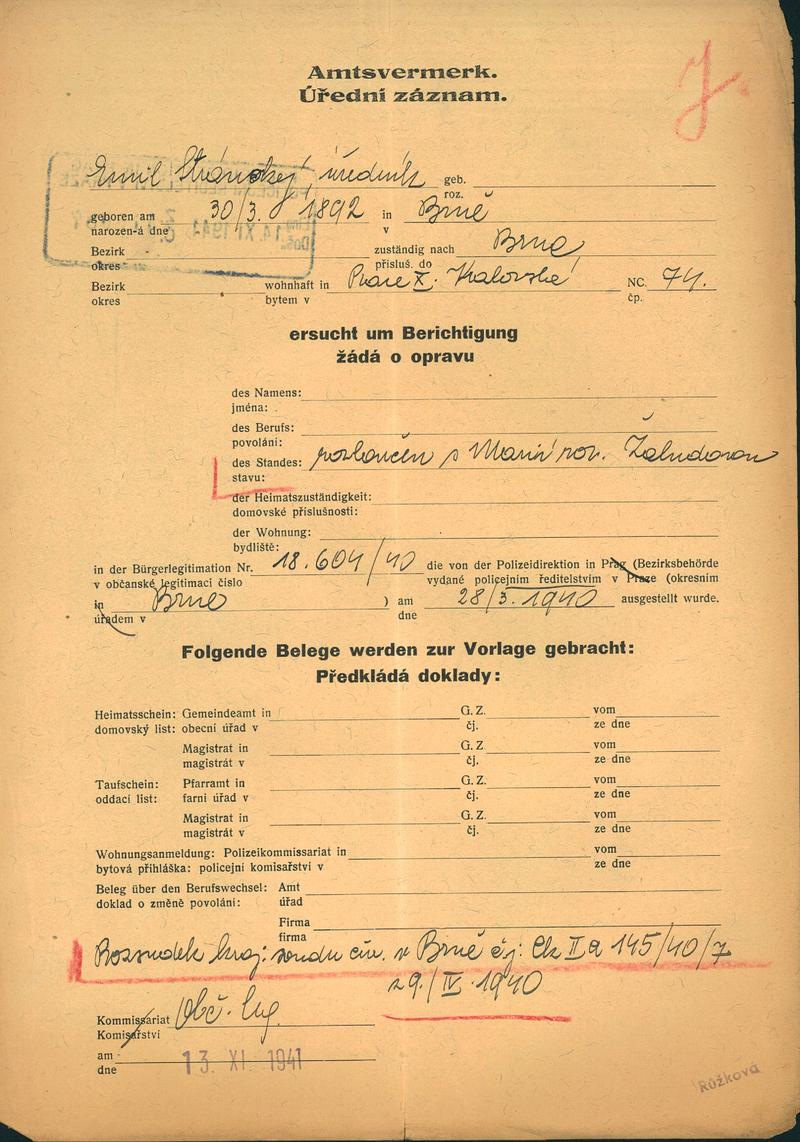 J.
Amtsvermerk.
Úřední záznam.
Emil Stránský, úředník geb.
roz.
geboren am 30/3. 1892 in Brně
narozen-á dne v
Bezirk zuständig nach Brno
okres přísluš. do
Bezirk wohnhaft in Praze X. Královská NC. 74.
okres bytem v čp.
ersucht um Berichtigung
žádá o opravu
des Namens:
jména:
des Berufs:
povolání:
des Standes: rozloučen s Marií roz. Žaludovou
stavu:
der Heimatszuständigkeit:
domovské příslušnosti:
der Wohnung:
bydliště:
in der Bürgerlegitimation Nr. 18.604/40 die von der Polizeidirektion in Prag (Bezirksbehörde
v občanské legitimaci číslo vydané policejním ředitelstvím v Praze (okresním
in Brno ) am 28/5. 1940 ausgestellt wurde.
úřadem v dne
Folgende Belege werden zur Vorlage gebracht:
Předkládá doklady:
Heimatsschein: Gemeindeamt in G. Z. vom
domovský list: obecní úřad v čj. ze dne
Magistrat in G. Z. vom
magistrát v čj. ze dne
Taufschein: Pfarramt in G. Z. vom
oddací list: farní úřad v čj. ze dne
Magistrat in G. Z. vom
magistrát v čj. ze dne
Wohnungsanmeldung: Polizeikommissariat in vom
bytová přihláška: policejní komisařství v ze dne
Beleg über den Berufswechsel: Amt
doklad o změně povolání: úřad
Firma
firma
Rozsudek kraj: soudu civ. v Brně čj: Ck II a 145/40/7
z 29./IV. 1940
Kommissariat Obč. leg.
Komisařství
am 13. XI. 1941
dne
Růžková